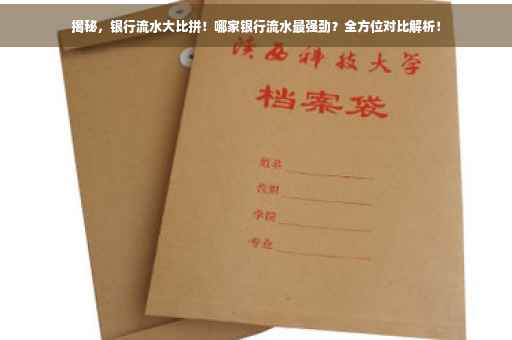 揭秘，银行流水大比拼！哪家银行流水最强劲？全方位对比解析！
陕西科技大学
档案袋
姓名
学院
专业